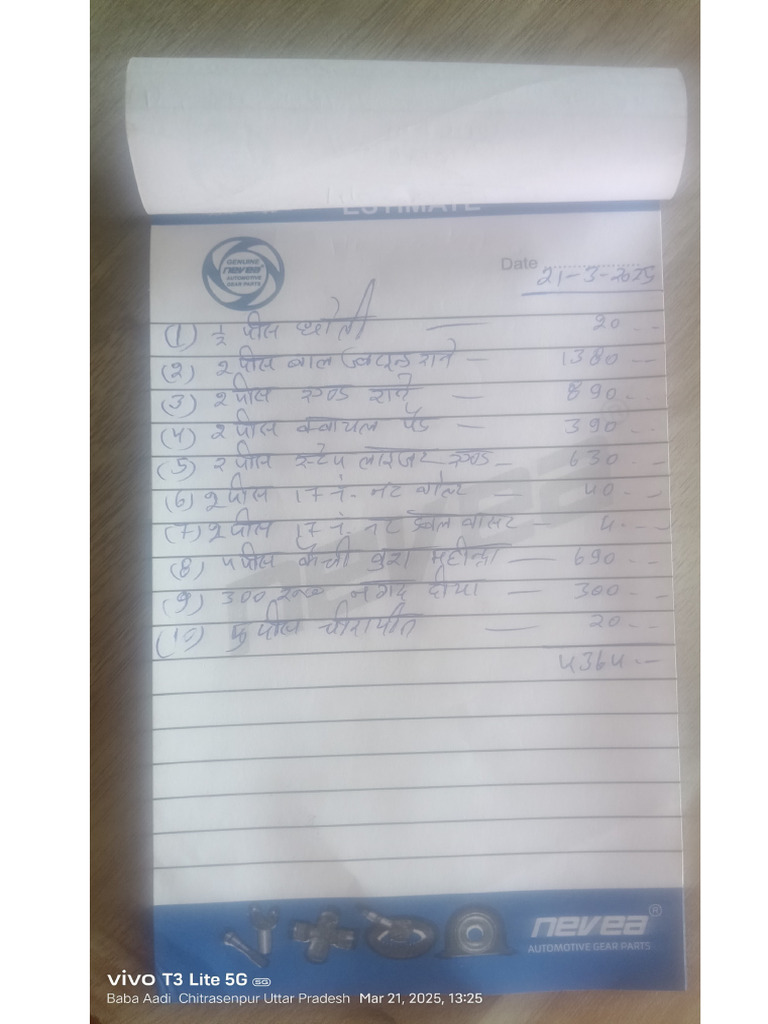 ESTIMATE
GENUINE
nevea®
AUTOMOTIVE
GEAR PARTS
Date 21-3-2025
(1) ½ पीस धोती — 20 --
(2) 2 पीस बाल — 1380 --
(3) 2 पीस एण्ड राने — 890 --
(4) 2 पीस क्वायल पैड — 390 --
(5) 2 पीस स्टेप लाइजर एण्ड — 630 --
(6) 2 पीस 17 नं. नट बोल्ट — 40 --
(7) 2 पीस 17 नं. नट डबल वासर — 4 --
(8) 4 पीस कैंची बुश महीन्द्रा — 690 --
(9) 300 नगद दीया — 300 --
(10) पीस चीरापीन — 20 --
4364 --
nevea®
AUTOMOTIVE GEAR PARTS
vivo T3 Lite 5G 5G
Baba Aadi Chitrasenpur Uttar Pradesh Mar 21, 2025, 13:25